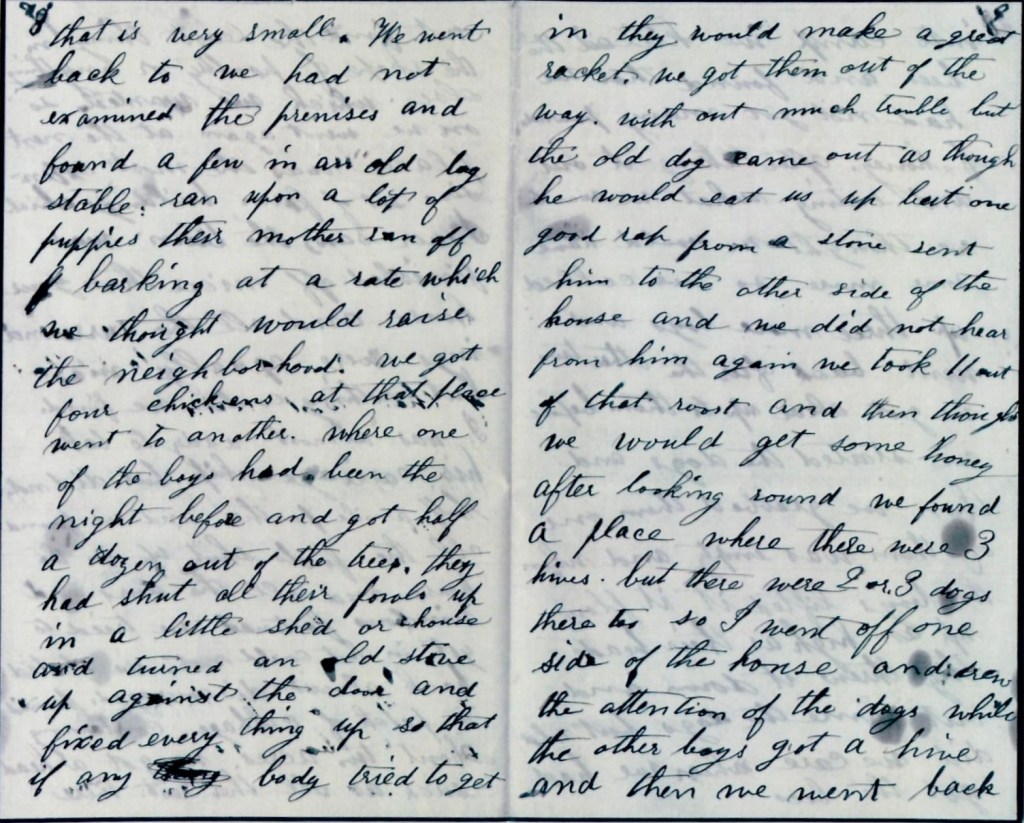 8
that is very small. We went
back to we had not
examined the premises and
found a few in an old log
stable: ran upon a lot of
puppies their mother run off
barking at a rate which
we thought would raise
the neighborhood. we got
four chickens at that place
went to another. where one
of the boys had been the
night before and got half
a dozen out of the trees. they
had shut all their fowls up
in a little shed or house
and turned an old stove
up against the door and
fixed every thing up so that
if any body tried to get
9
in they would make a great
racket. we got them out of the
way. with out much trouble but
the old dog came out as though
he would eat us up but one
good rap from a stone sent
him to the other side of the
house and we did not hear
from him again we took 11 out
of that roost and then thought
we would get some honey
after looking round we found
a place where there were 3
hives. but there were 2 or 3 dogs
there too so I went off one
side of the house and drew
the attention of the dogs while
the other boys got a hive
and then we went back